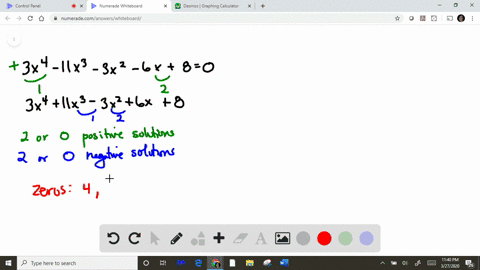 Control Panel
Numerade Whiteboard
Desmos | Graphing Calculator
numerade.com/answers/whiteboard/
+3x⁴ - 11x³ - 3x² - 6x + 8 = 0
1 2
3x⁴ + 11x³ - 3x² + 6x + 8
1 2
2 or 0 positive solutions
2 or 0 negative solutions
zeros: 4,
Type here to search
11:40 PM
3/27/2020